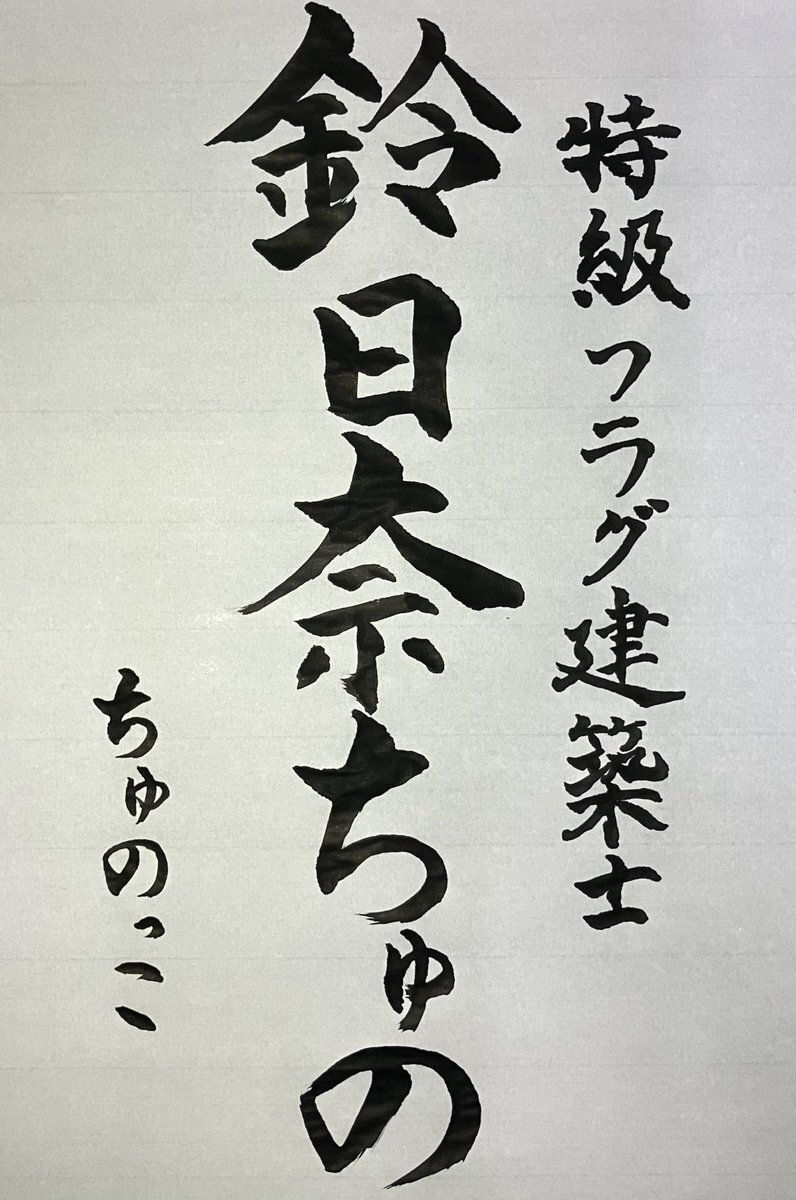 特級フラグ建築士
鈴日奈ちゅの
ちゅのっこ